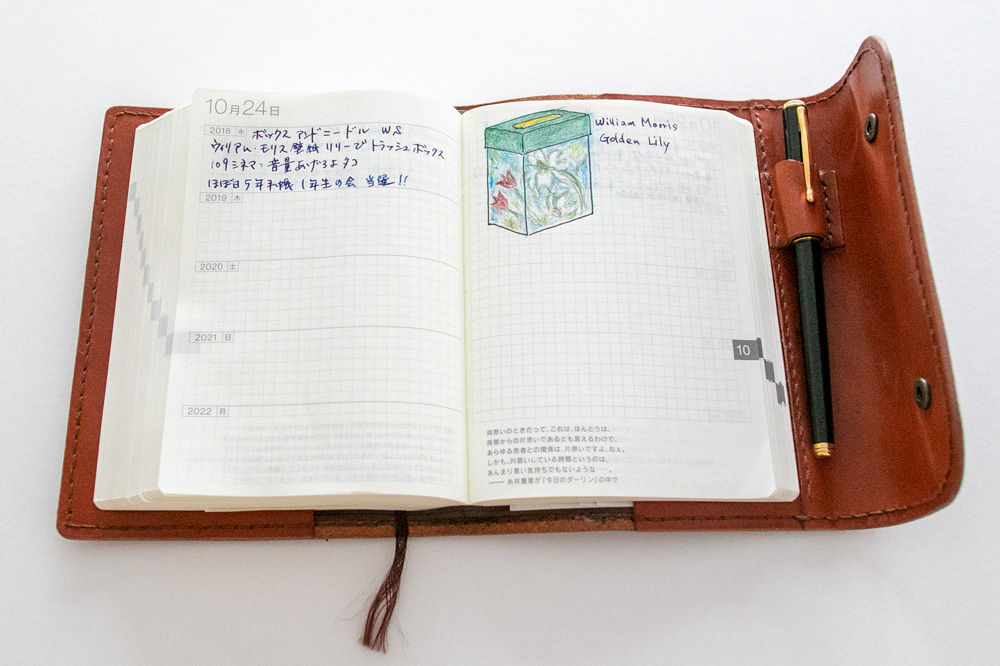 10月24日
2018 水 ボックス アンド ニードル WS
ウィリアム・モリス壁紙 リリーで トラッシュボックス
109シネマ・音量あげろよタコ
ほぼ日5年手帳 1年生の会 当選!!
2019 木
2020 土
2021 日
2022 月
William Morris
Golden Lily
10
両思いのときだって、これは、ほんとうは、
両側からの片思いであるとも言えるわけで、
あらゆる他者との関係は、片思いですよ、ねぇ。
しかも、片思いしている時間というのは、
あんまり悪い気持ちでもないような‥‥。
―― 糸井重里が『今日のダーリン』の中で